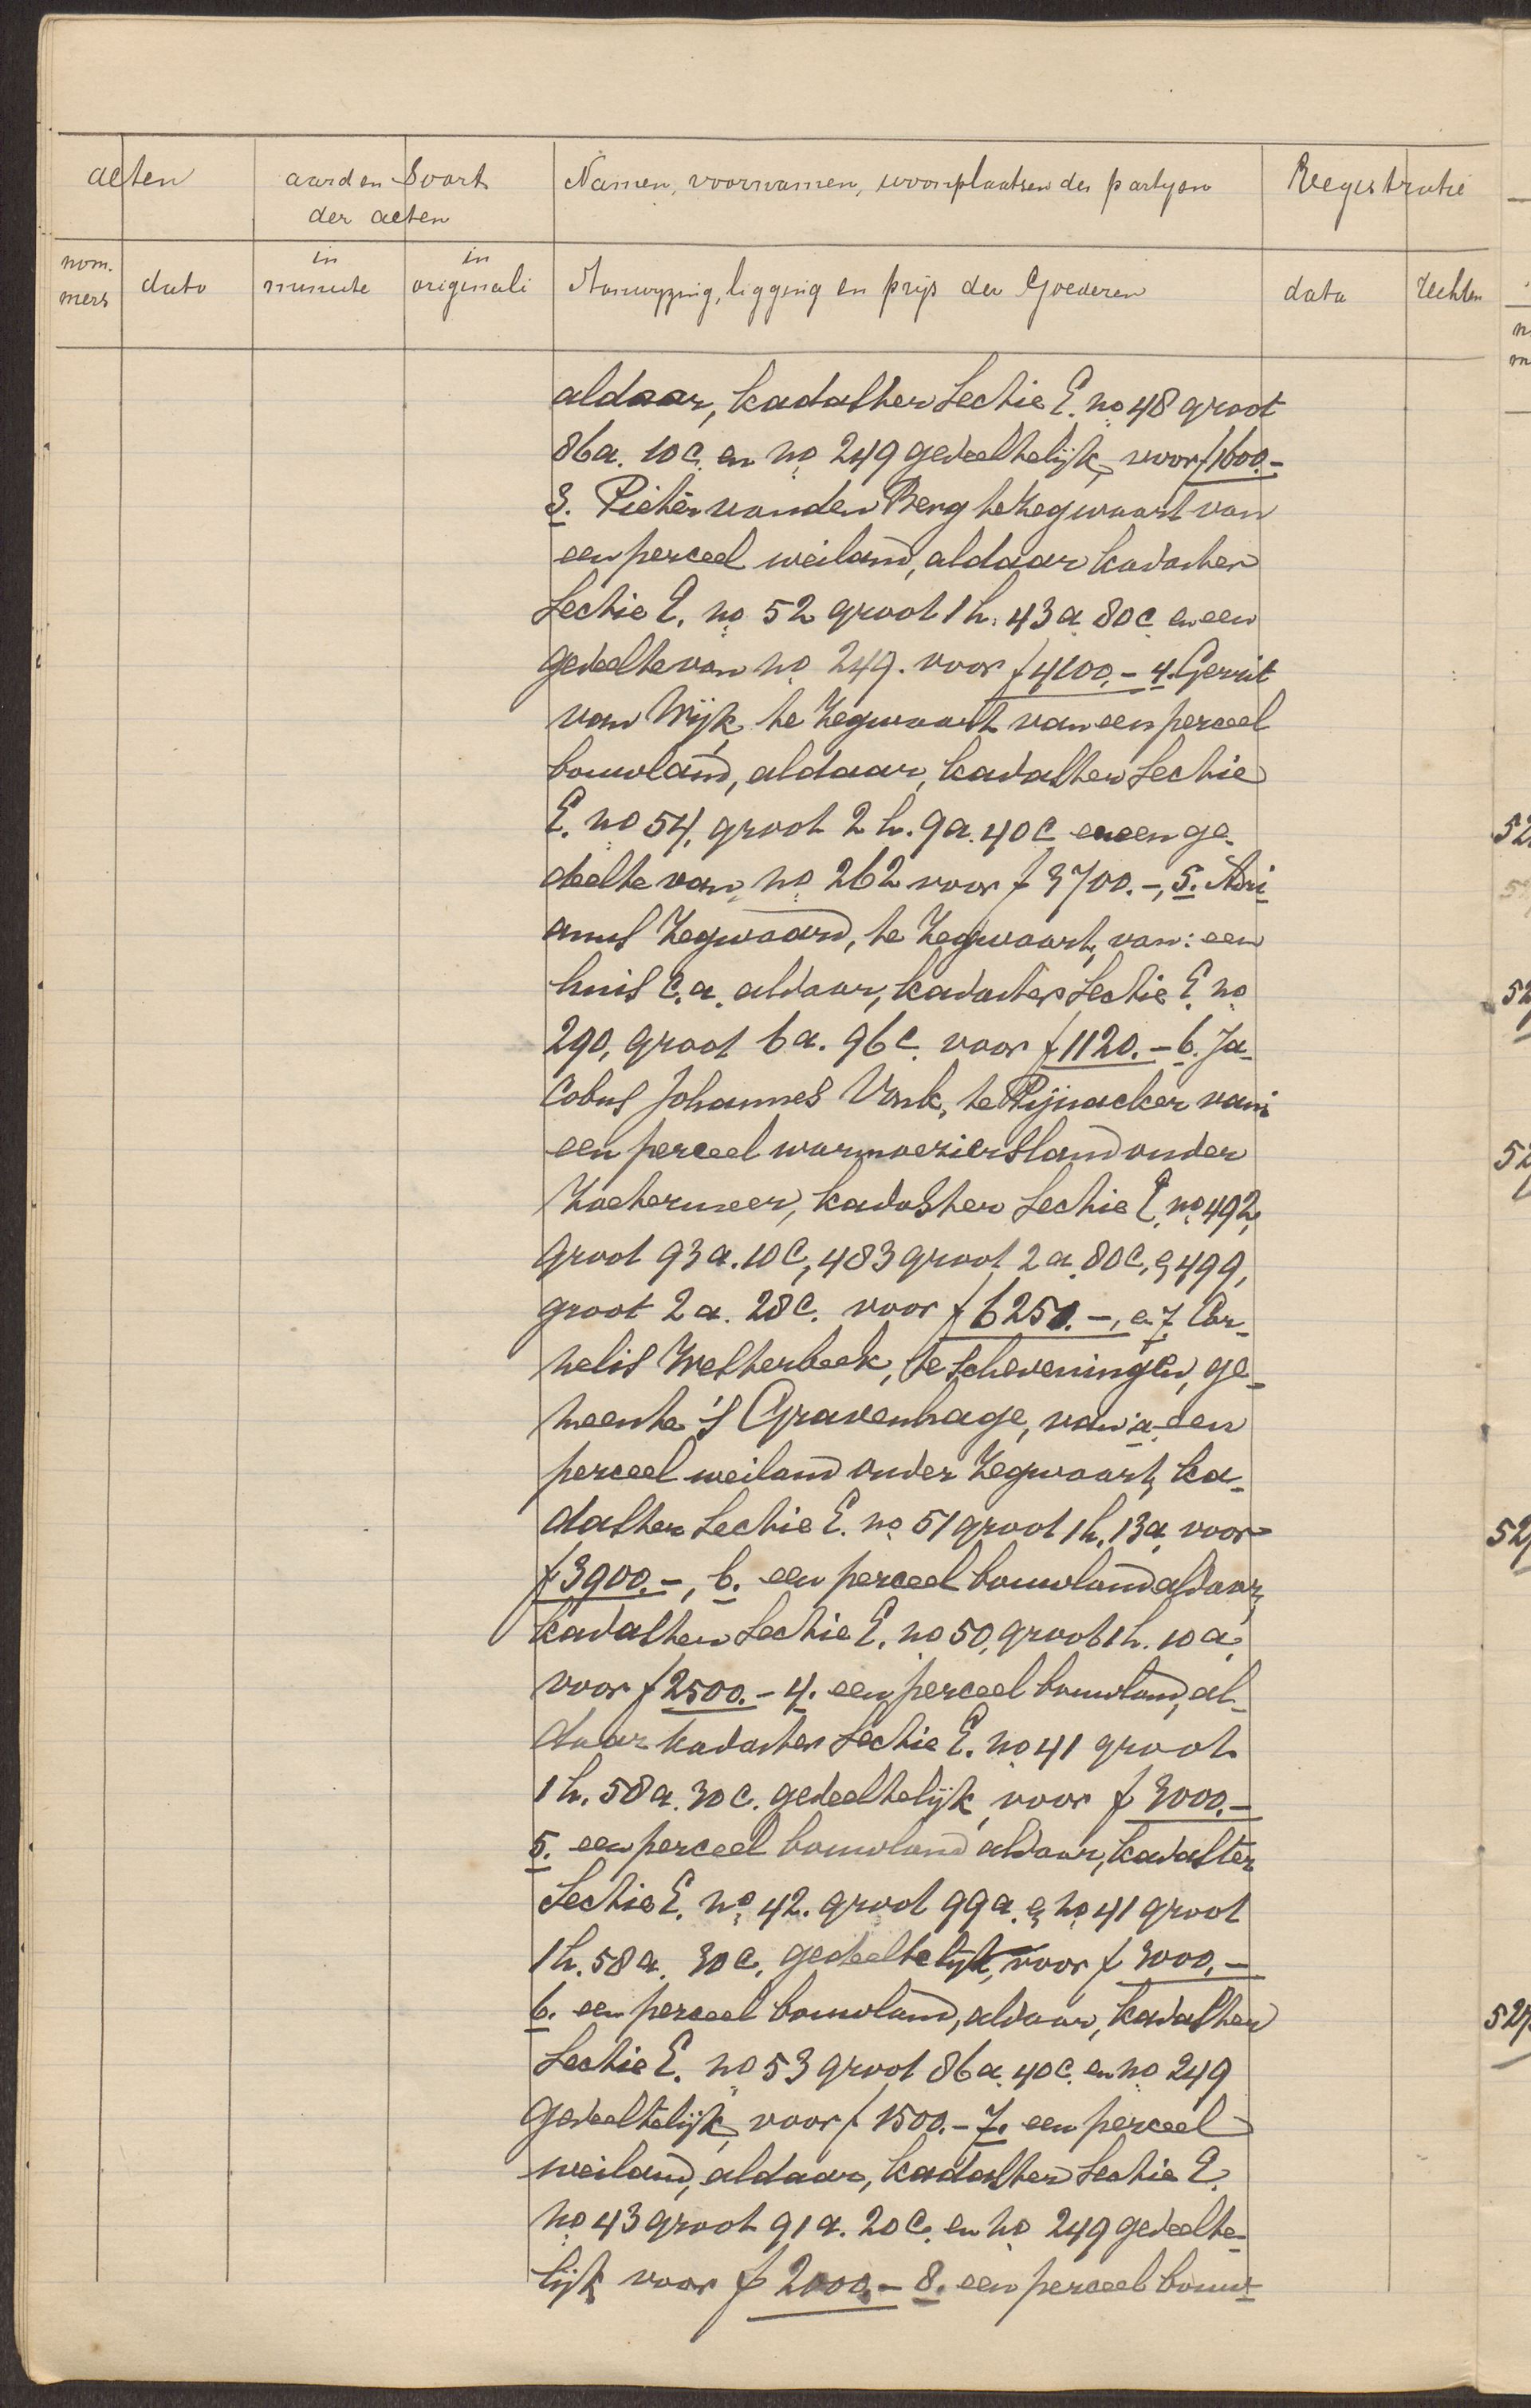 acten aard en Soort Namen, voornamen, woonplaatsen der partyen Registratie
der acten
nom. in in
mers dato minute originali Aanwyzing, ligging en prijs der Goederen data rechten
aldaar, kadaster Sectie E. no 48 groot
86a. 10c. en no 249 gedeeltelijk, voor f1600.-
3. Pieter van den Berg te Zegwaart van
een perceel weiland, aldaar kadaster
Sectie E. no 52 groot 1 h. 43a 80c en een
gedeelte van no 249. voor f4100,- 4. Gerrit
van Wijk, te Zegwaart van een perceel
bouwland, aldaar, kadaster Sectie
E. no 54, groot 2 h. 9a. 40c en een ge-
deelte van no 262 voor f 3700.-, 5. Adri-
anus Zegwaard, te Zegwaart, van: een
huis c.a. aldaar, kadaster Sectie E. no
290, groot 6a. 96c. voor f1120.- 6. Ja-
cobus Johannes Vonk, te Pijnacker van:
een perceel warmoeziersland onder
Zoetermeer, kadaster Sectie E. no 492,
groot 93a. 10c, 483 groot 2a. 80c, & 499,
groot 2a. 28c. voor f 6250.-, en 7. Cor-
nelis Westerbeek, te Scheveningen, ge-
meente 's Gravenhage, van: a. een
perceel weiland onder Zegwaart, ka-
daster Sectie E. no 51 groot 1h. 13a, voor
f3900.-, b. een perceel bouwland aldaar,
kadaster Sectie E. no 50, groot 1h. 10a,
voor f2500.- 4. een perceel bouwland, al-
daar kadaster Sectie E. no 41 groot
1 h. 58a. 30c. gedeeltelijk, voor f 3000.-
5. een perceel bouwland aldaar, kadaster
Sectie E. no 42. groot 99a. & no 41 groot
1h. 58a. 30c. gedeeltelijk, voor f 3000,-
6. een perceel bouwland, aldaar, kadaster
Sectie E. no 53 groot 86a. 40c. en no 249
gedeeltelijk, voor f 1500.- 7. een perceel
weiland, aldaar, kadaster Sectie E.
no 43 groot 91a. 20c. en no 249 gedeelte-
lijk voor f 2000.- 8. een perceel bouw-